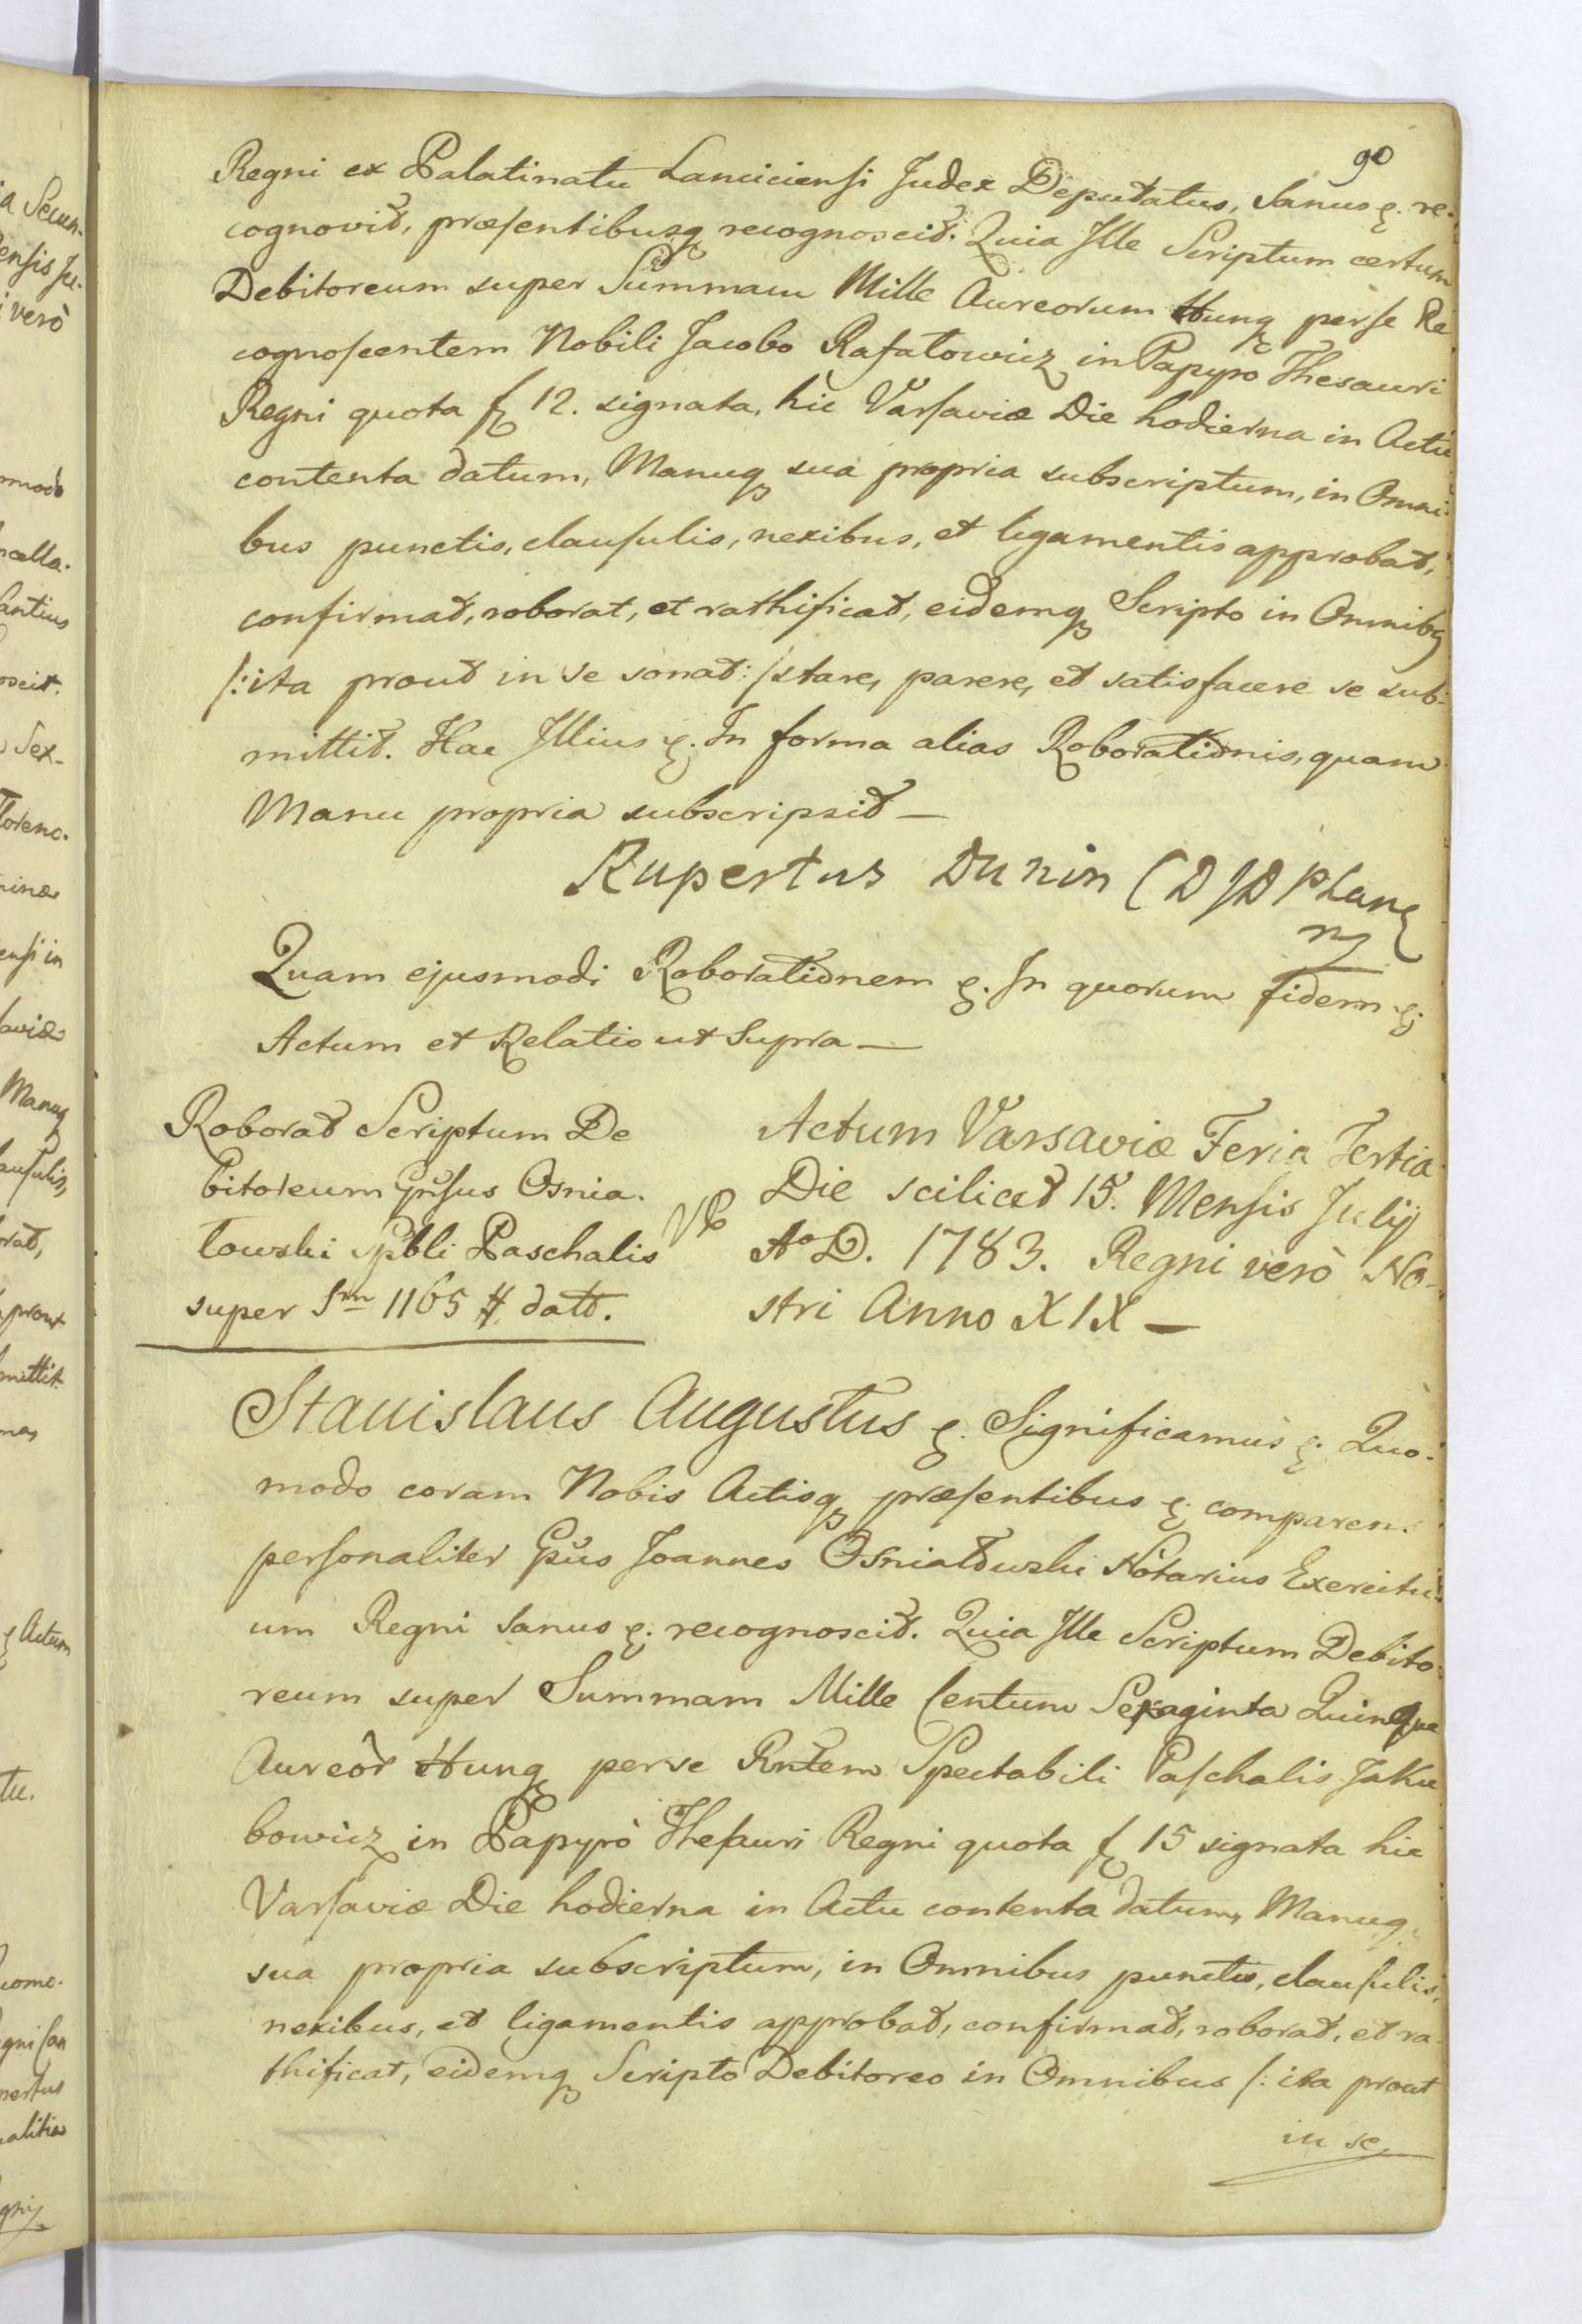 90
Regni ex Palatinatu Lanciciensi Judex Deputatus, Sanus &. re-
cognovit, præsentibusq recognoscit. Quia Ille Scriptum certum
Debitoreum super Summam Mille Aureorum Hung per se Re
cognoscentem Nobili Jacobo Rafałowicz in Papyro Thesauri
Regni quota f 12. signata, hic Varsaviæ Die hodierna in Actu
contenta datum, Manuq sua propria subscriptum, in Omni-
bus punctis, clausulis, nexibus, et ligamentis approbat,
confirmat, roborat, et rathificat, eidemq Scripto in Omnibq
/: ita prout in se sonat :/ stare, parere, et satisfacere se sub-
mittit. Hac Illius &. In forma alias Roborationis, quam
Manu propria subscripsit —
Rupertus Dunin
Quam ejusmodi Roborationem &. In quorum fidem &.
Actum et Relatio ut Supra —
Roborat Scriptum De
bitoreum Gnsus Osnia-
łowski Spbli Paschalis
super Sm 1165 # datt.
Actum Varsaviæ Feria Tertia
Die scilicet 15. Mensis Julij
Ao D. 1783. Regni verò No-
stri Anno XIX —
Stanislaus Augustus &. Significamus &. Quo-
modo coram Nobis Actisq præsentibus &. comparen.
personaliter Gnus Joannes Osniałowski Notarius Exercitu
um Regni Sanus &. recognoscit. Quia Ille Scriptum Debito
reum super Summam Mille Centum Sexaginta Quinque
Aureor Hung per se Rntem Spectabili Paschalis Jaku
bowicz in Papyrò Thesauri Regni quota f 15 signata hic
Varsaviæ Die hodierna in Actu contenta datum, Manuq
sua propria subscriptum, in Omnibus punctis, clausulis,
nexibus, et ligamentis approbat, confirmat, roborat, et ra
thificat, eidemq Scripto Debitoreo in Omnibus /: ita prout
in se